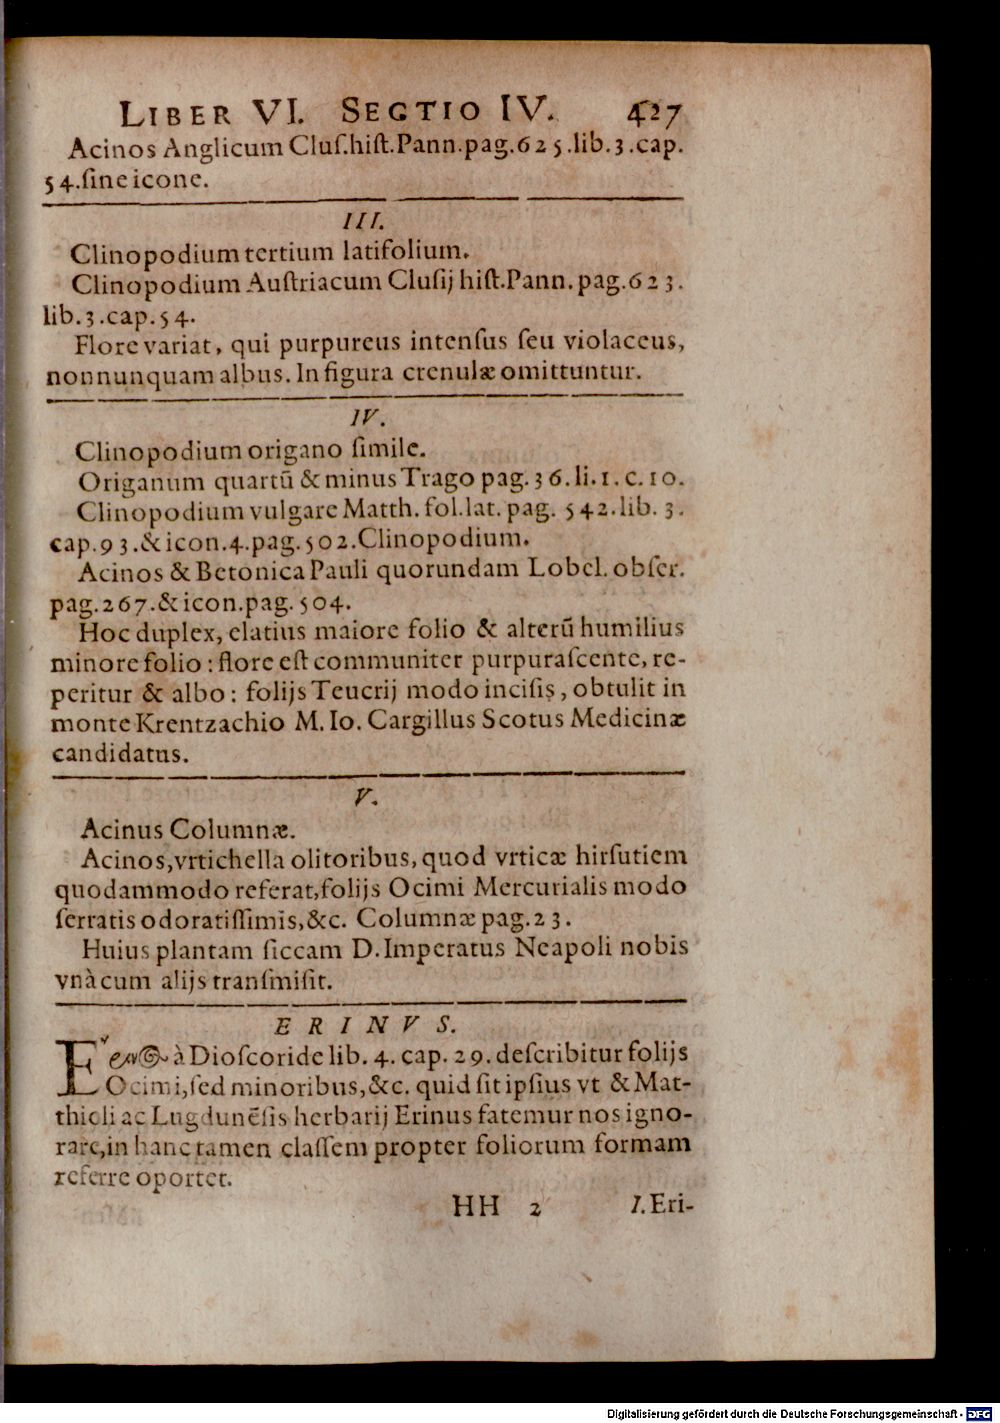 LIBER VI. SECTIO IV. 427
Acinos Anglicum Cluſ.hiſt.Pann.pag.625.lib.3.cap.
54.ſine icone.
III.
Clinopodium tertium latifolium.
Clinopodium Auſtriacum Cluſij hiſt.Pann.pag.623.
lib.3.cap.54.
Flore variat, qui purpureus intenſus ſeu violaceus,
nonnunquam albus. In figura crenulæ omittuntur.
IV.
Clinopodium origano ſimile.
Origanum quartū & minus Trago pag.36.li.1.c.10.
Clinopodium vulgare Matth. fol.lat. pag. 542.lib. 3.
cap.93.& icon.4.pag.502.Clinopodium.
Acinos & Betonica Pauli quorundam Lobel. obſer.
pag.267.& icon.pag.504.
Hoc duplex, elatius maiore folio & alterū humilius
minore folio : flore eſt communiter purpuraſcente, re-
peritur & albo : folijs Teucrij modo inciſis, obtulit in
monte Krentzachio M. Io. Cargillus Scotus Medicinæ
candidatus.
V.
Acinus Columnæ.
Acinos,vrtichella olitoribus, quod vrticæ hirſutiem
quodammodo referat,folijs Ocimi Mercurialis modo
ſerratis odoratiſſimis,&c. Columnæ pag.23.
Huius plantam ſiccam D. Imperatus Neapoli nobis
vnà cum alijs tranſmiſit.
ERINVS.
E à Dioſcoride lib. 4. cap. 29. deſcribitur folijs
Ocimi,ſed minoribus,&c. quid ſit ipſius vt & Mat-
thioli ac Lugdunēſis herbarij Erinus fatemur nos igno-
rare,in hanc tamen claſſem propter foliorum formam
referre oportet.
HH 2 I.Eri-
Digitalisierung gefördert durch die Deutsche Forschungsgemeinschaft - DFG